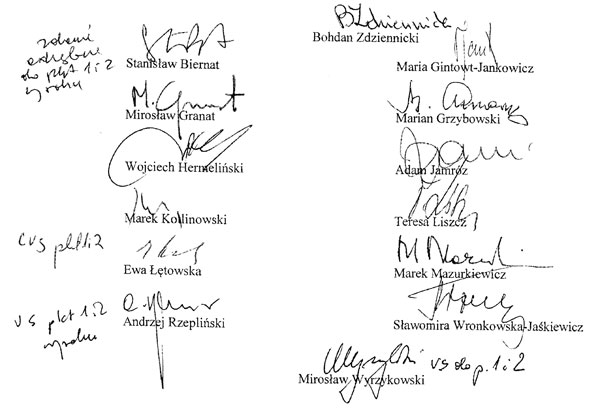 B Zdziennicki
Bohdan Zdziennicki
zdanie
odrębne
do pkt 1 i 2
wyroku
Stanisław Biernat
Maria Gintowt-Jankowicz
M. Granat
Mirosław Granat
Marian Grzybowski
Wojciech Hermeliński
Adam Jamróz
Marek Kotlinowski
Teresa Liszcz
cvs pkt 1 i 2
Ewa Łętowska
M Mazurkiewicz
Marek Mazurkiewicz
vs pkt 1 i 2
wyroku
Andrzej Rzepliński
Sławomira Wronkowska-Jaśkiewicz
Wyrzykowski vs do p. 1 i 2
Mirosław Wyrzykowski